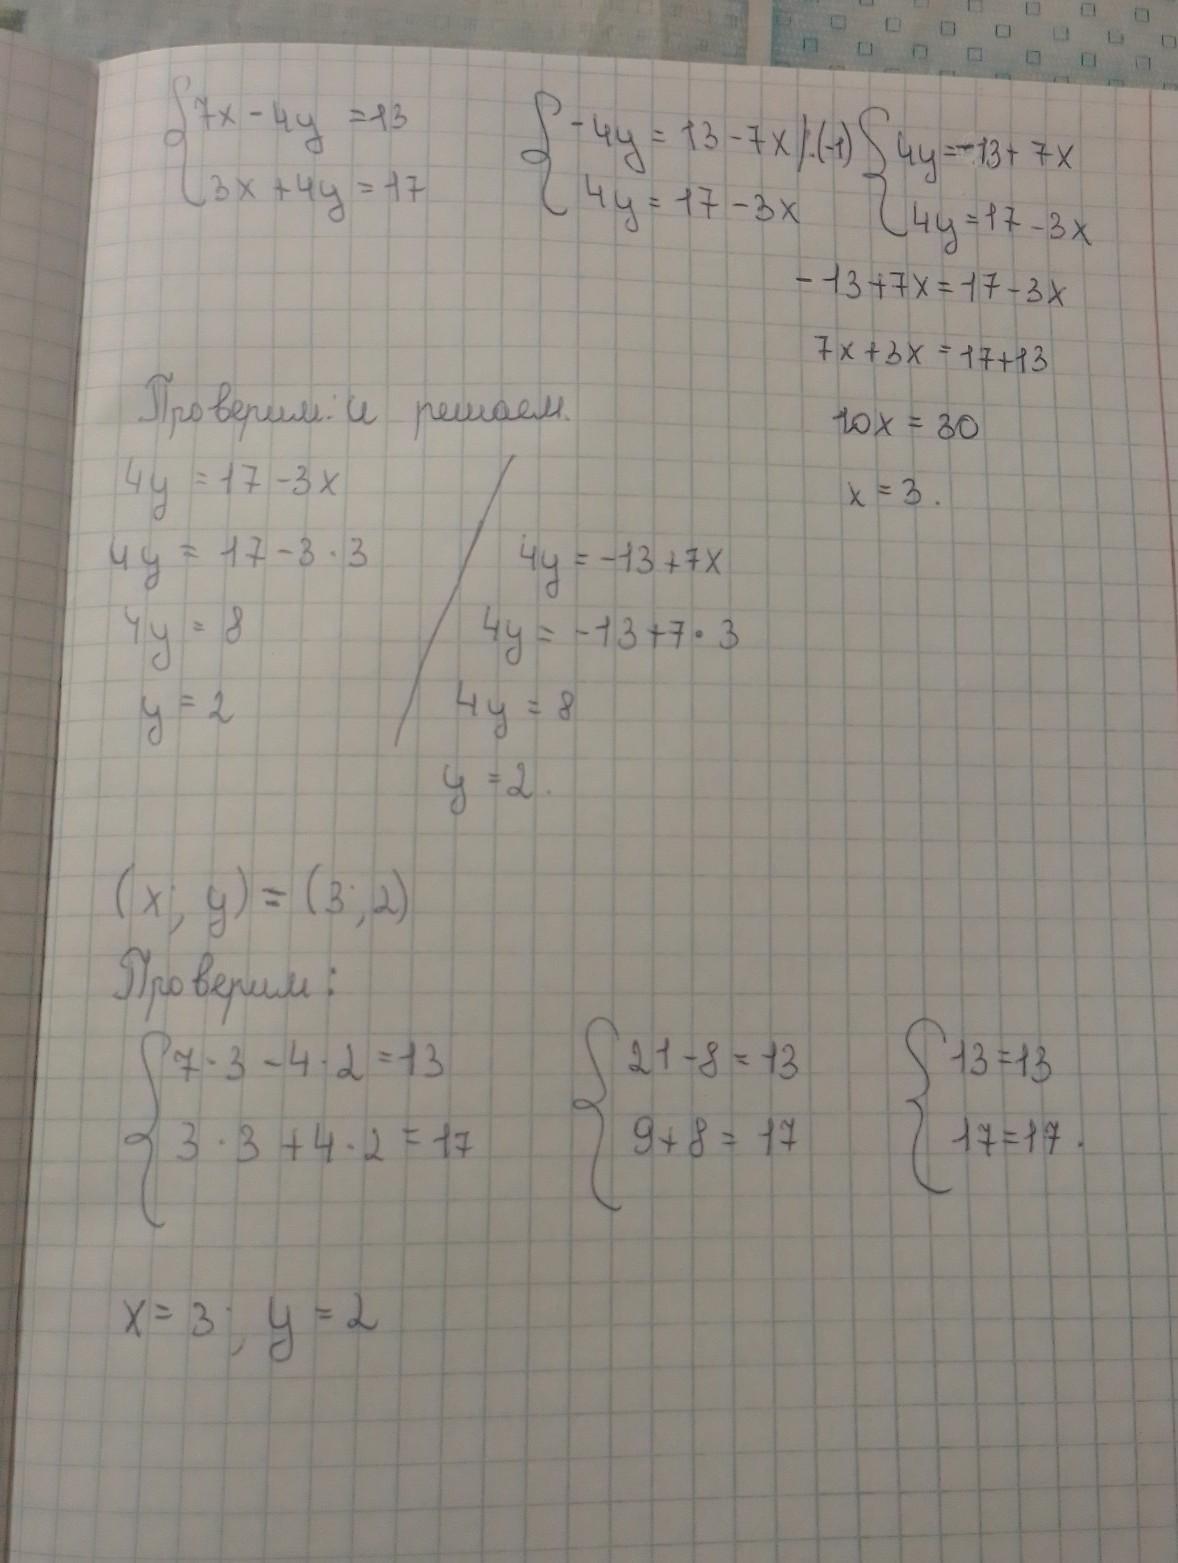 7x - 4y = 13
3x + 4y = 17
-4y = 13 - 7x |:(-1)
4y = 17 - 3x
4y = -13 + 7x
4y = 17 - 3x
-13 + 7x = 17 - 3x
7x + 3x = 17 + 13
10x = 30
x = 3.
Проверим: и решаем.
4y = 17 - 3x
4y = 17 - 3 · 3
4y = 8
y = 2
4y = -13 + 7x
4y = -13 + 7 · 3
4y = 8
y = 2.
(x; y) = (3; 2)
Проверим:
7 · 3 - 4 · 2 = 13
3 · 3 + 4 · 2 = 17
21 - 8 = 13
9 + 8 = 17
13 = 13
17 = 17.
x = 3; y = 2